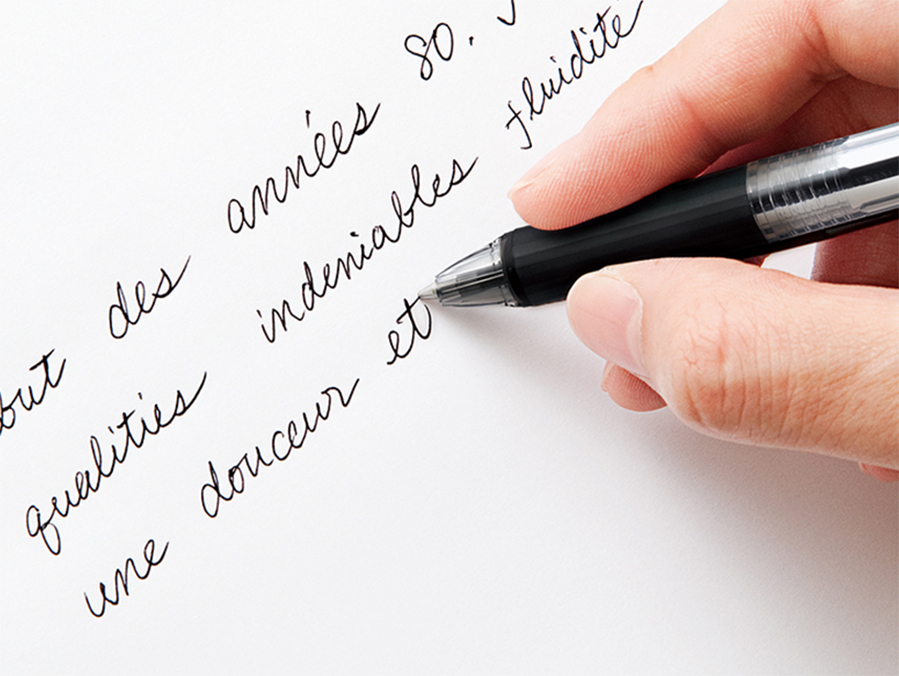 but des années 80.
qualities indeniables fluidité
une douceur et